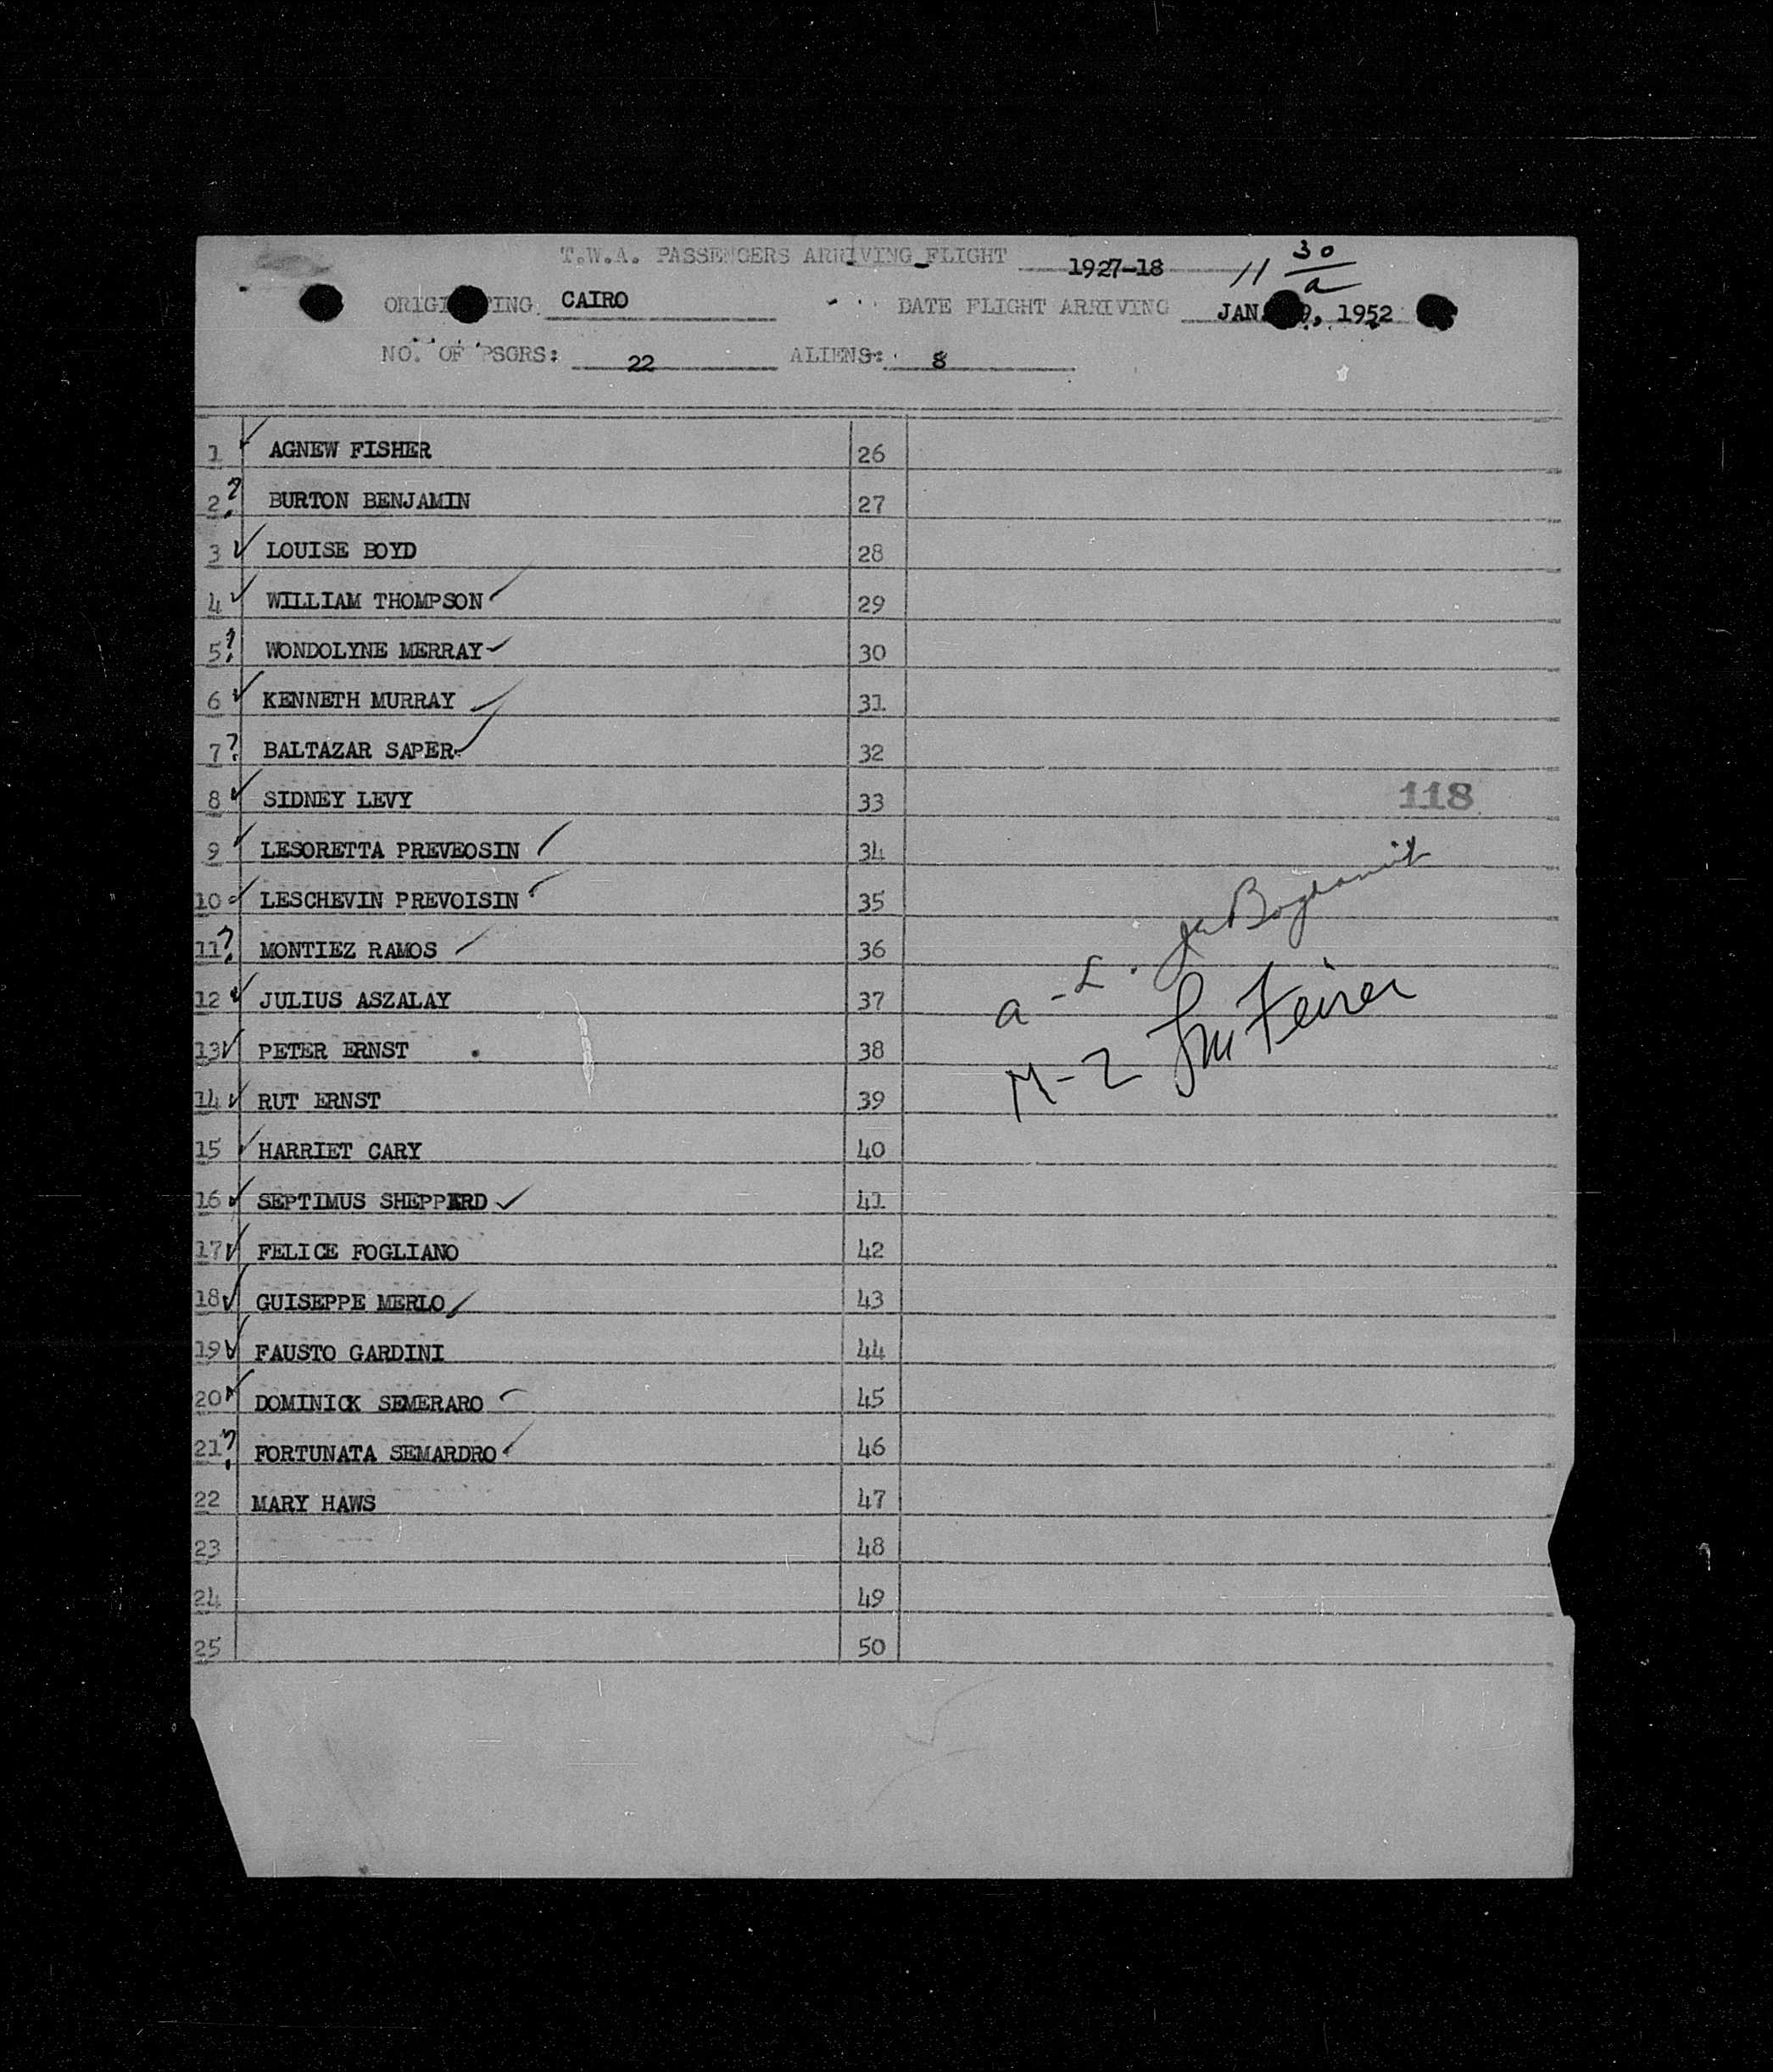 T.W.A. PASSENGERS ARRIVING FLIGHT 1927-18 11 30/a
ORIGI TING CAIRO DATE FLIGHT ARRIVING JAN. 9, 1952
NO. OF PSGRS: 22 ALIENS: 8
1 ✓ AGNEW FISHER 26
2 ? BURTON BENJAMIN 27
3 ✓ LOUISE BOYD 28
4 ✓ WILLIAM THOMPSON ✓ 29
5 ? WONDOLYNE MERRAY ✓ 30
6 ✓ KENNETH MURRAY ✓ 31
7 ? BALTAZAR SAPER ✓ 32
8 ✓ SIDNEY LEVY 33 118
9 ✓ LESORETTA PREVEOSIN ✓ 34
10 ✓ LESCHEVIN PREVOISIN ✓ 35
11 ? MONTIEZ RAMOS ✓ 36
12 ✓ JULIUS ASZALAY 37
a - L.
13 ✓ PETER ERNST 38
M - Z
14 ✓ RUT ERNST 39
15 ✓ HARRIET CARY 40
16 ✓ SEPTIMUS SHEPPARD ✓ 41
17 ✓ FELICE FOGLIANO 42
18 ✓ GUISEPPE MERLO ✓ 43
19 ✓ FAUSTO GARDINI 44
20 ✓ DOMINICK SEMERARO ✓ 45
21 ? FORTUNATA SEMARDRO ✓ 46
22 MARY HAWS 47
23 48
24 49
25 50